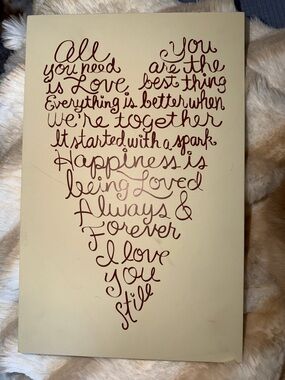 All You
you need are the
is Love best thing
Everything is better when
we're together
It started with a spark
Happiness is
being Loved
Always &
Forever
I love
you
still